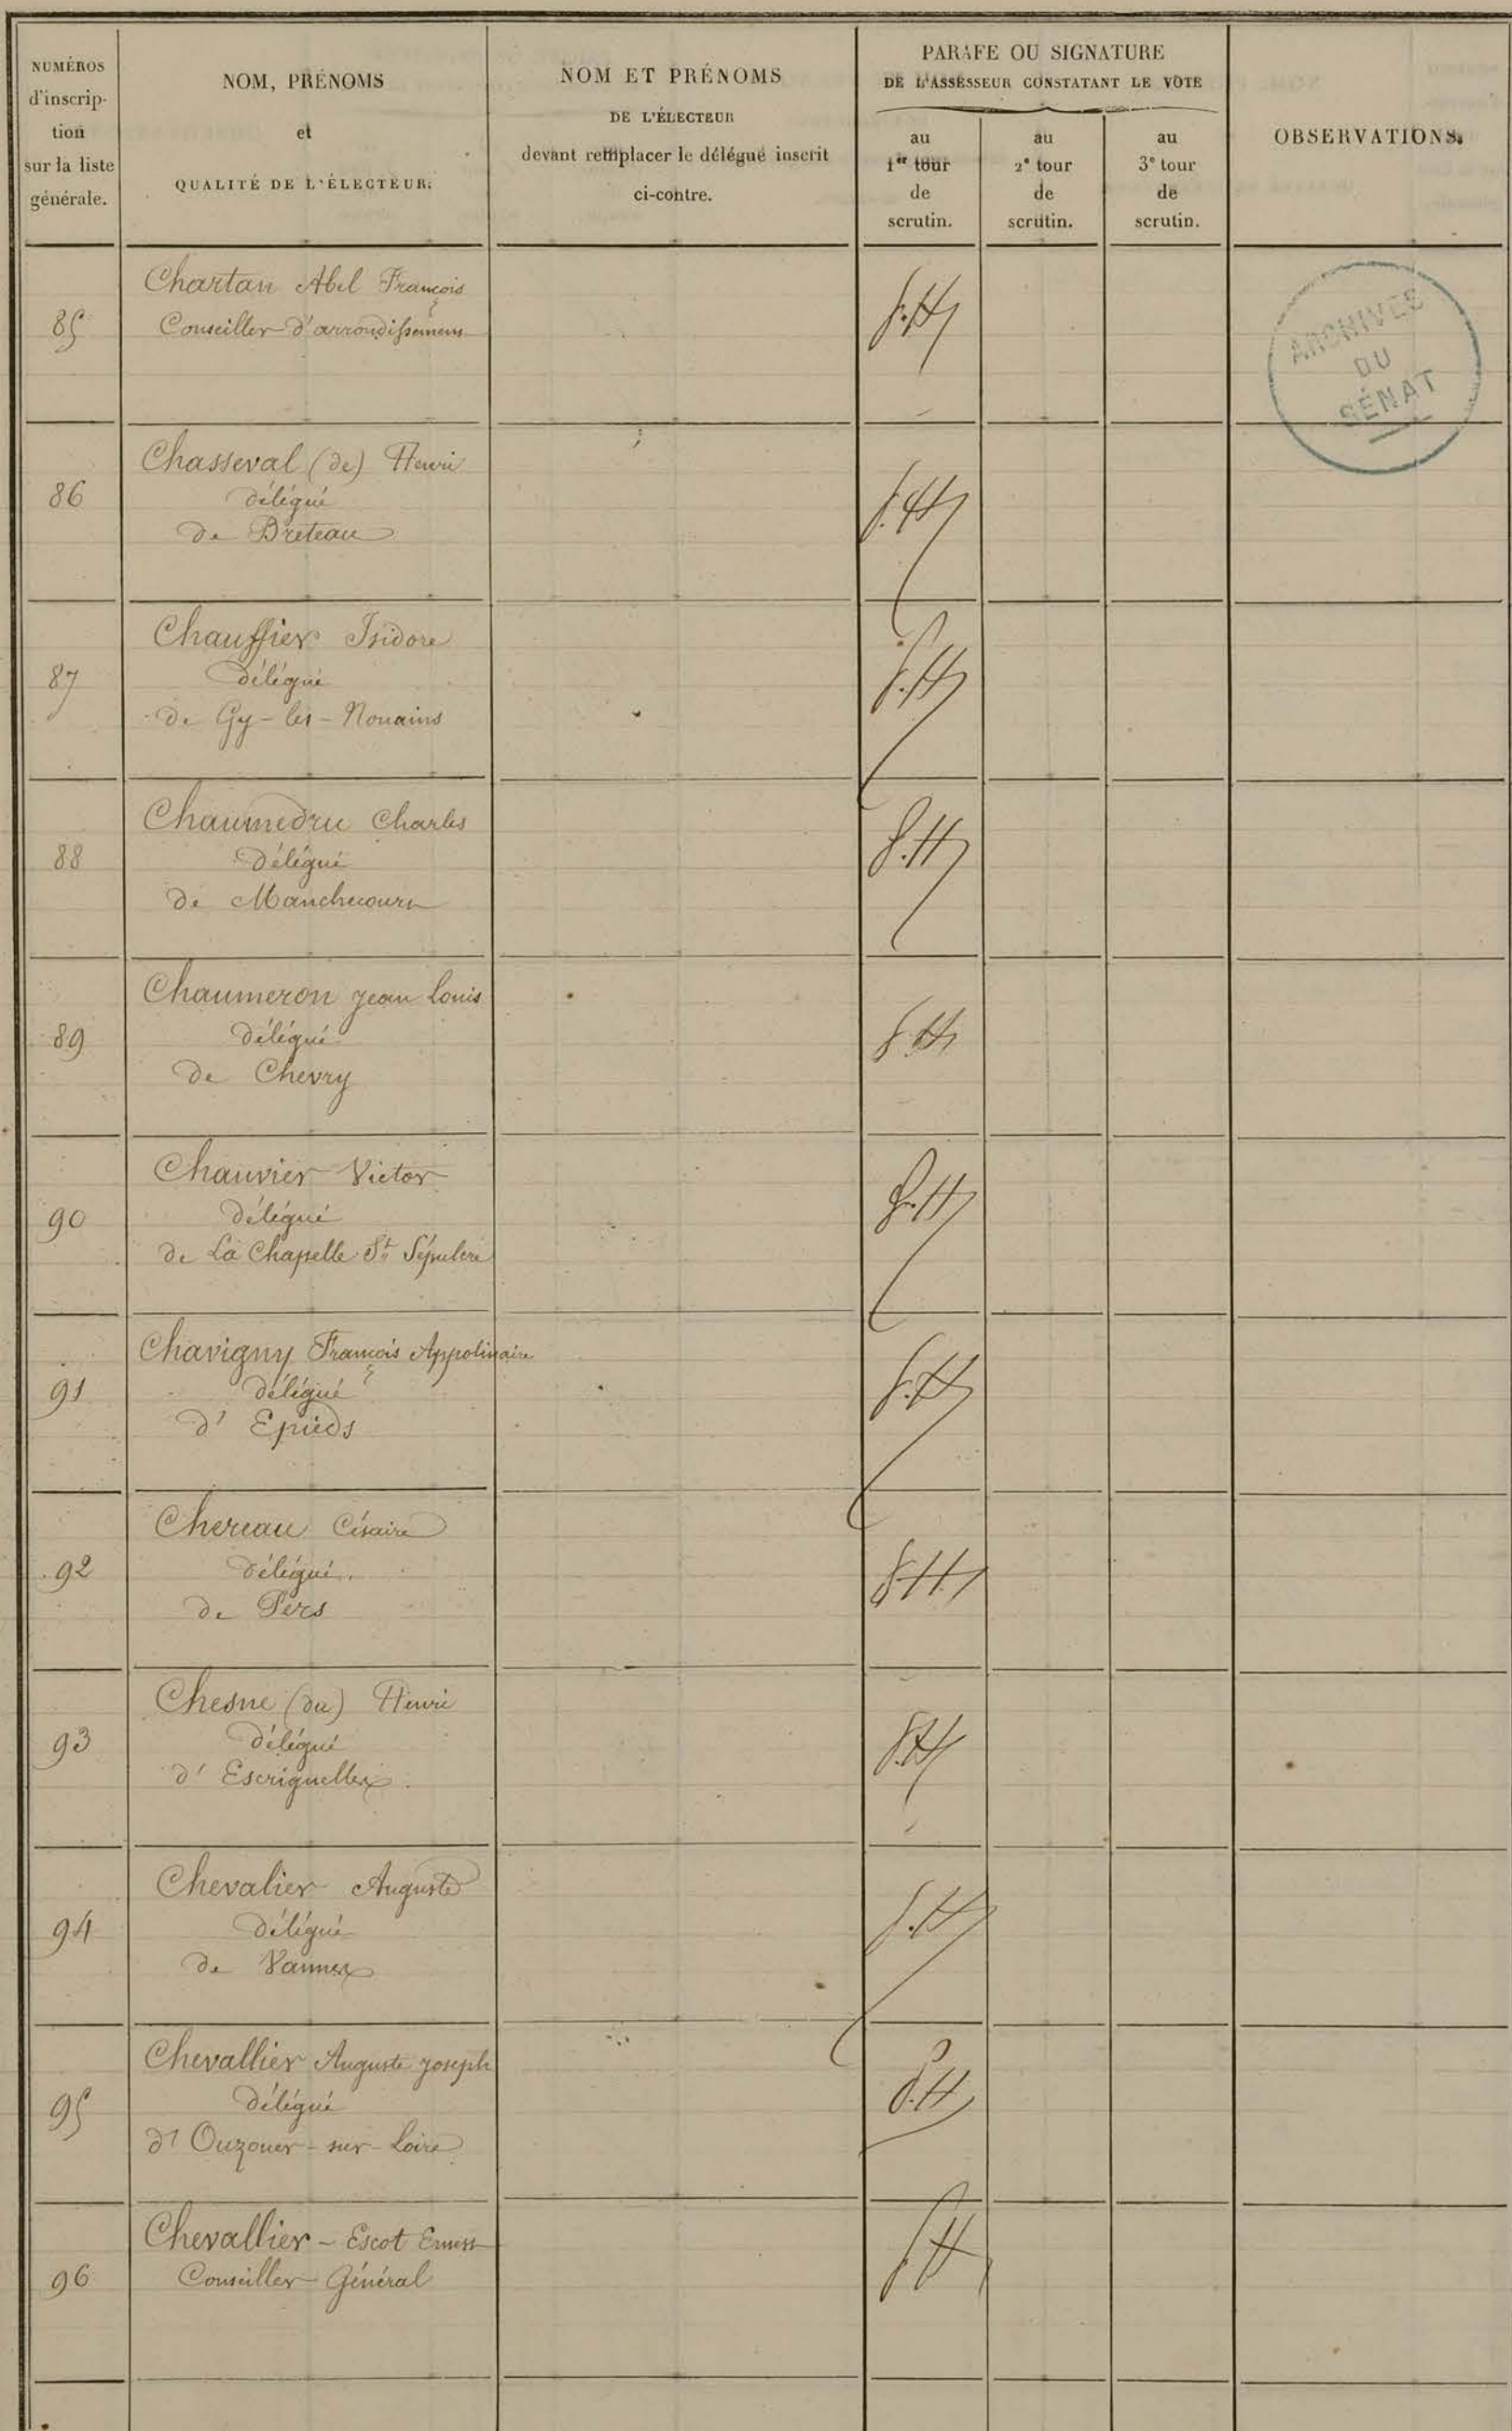 NUMÉROS
d'inscrip-
tion
sur la liste
générale.
NOM, PRÉNOMS
et
QUALITÉ DE L'ÉLECTEUR.
NOM ET PRÉNOMS
DE L'ÉLECTEUR
devant remplacer le délégué inscrit
ci-contre.
PARAFE OU SIGNATURE
DE L'ASSESSEUR CONSTATANT LE VOTE
au
1er tour
de
scrutin.
au
2e tour
de
scrutin.
au
3e tour
de
scrutin.
OBSERVATIONS.
ARCHIVES
DU
SÉNAT
85
Chartan Abel François
Conseiller d'arrondissement
86
Chasseval (de) Henri
délégué
de Breteau
87
Chauffier Isidore
délégué
de Gy-les-Nonains
88
Chaumedru Charles
délégué
de Manchecourt
89
Chaumeron Jean Louis
délégué
de Chevry
90
Chauvier Victor
délégué
de La Chapelle St Sépulcre
91
Chavigny François Appolinaire
délégué
d'Epieds
92
Chereau Césaire
délégué
de Pers
93
Chesne (du) Henri
délégué
d'Escrignelles
94
Chevalier Auguste
délégué
de Vannes
95
Chevallier Auguste Joseph
délégué
d'Ouzouer-sur-Loire
96
Chevallier-Escot Ernest
Conseiller Général